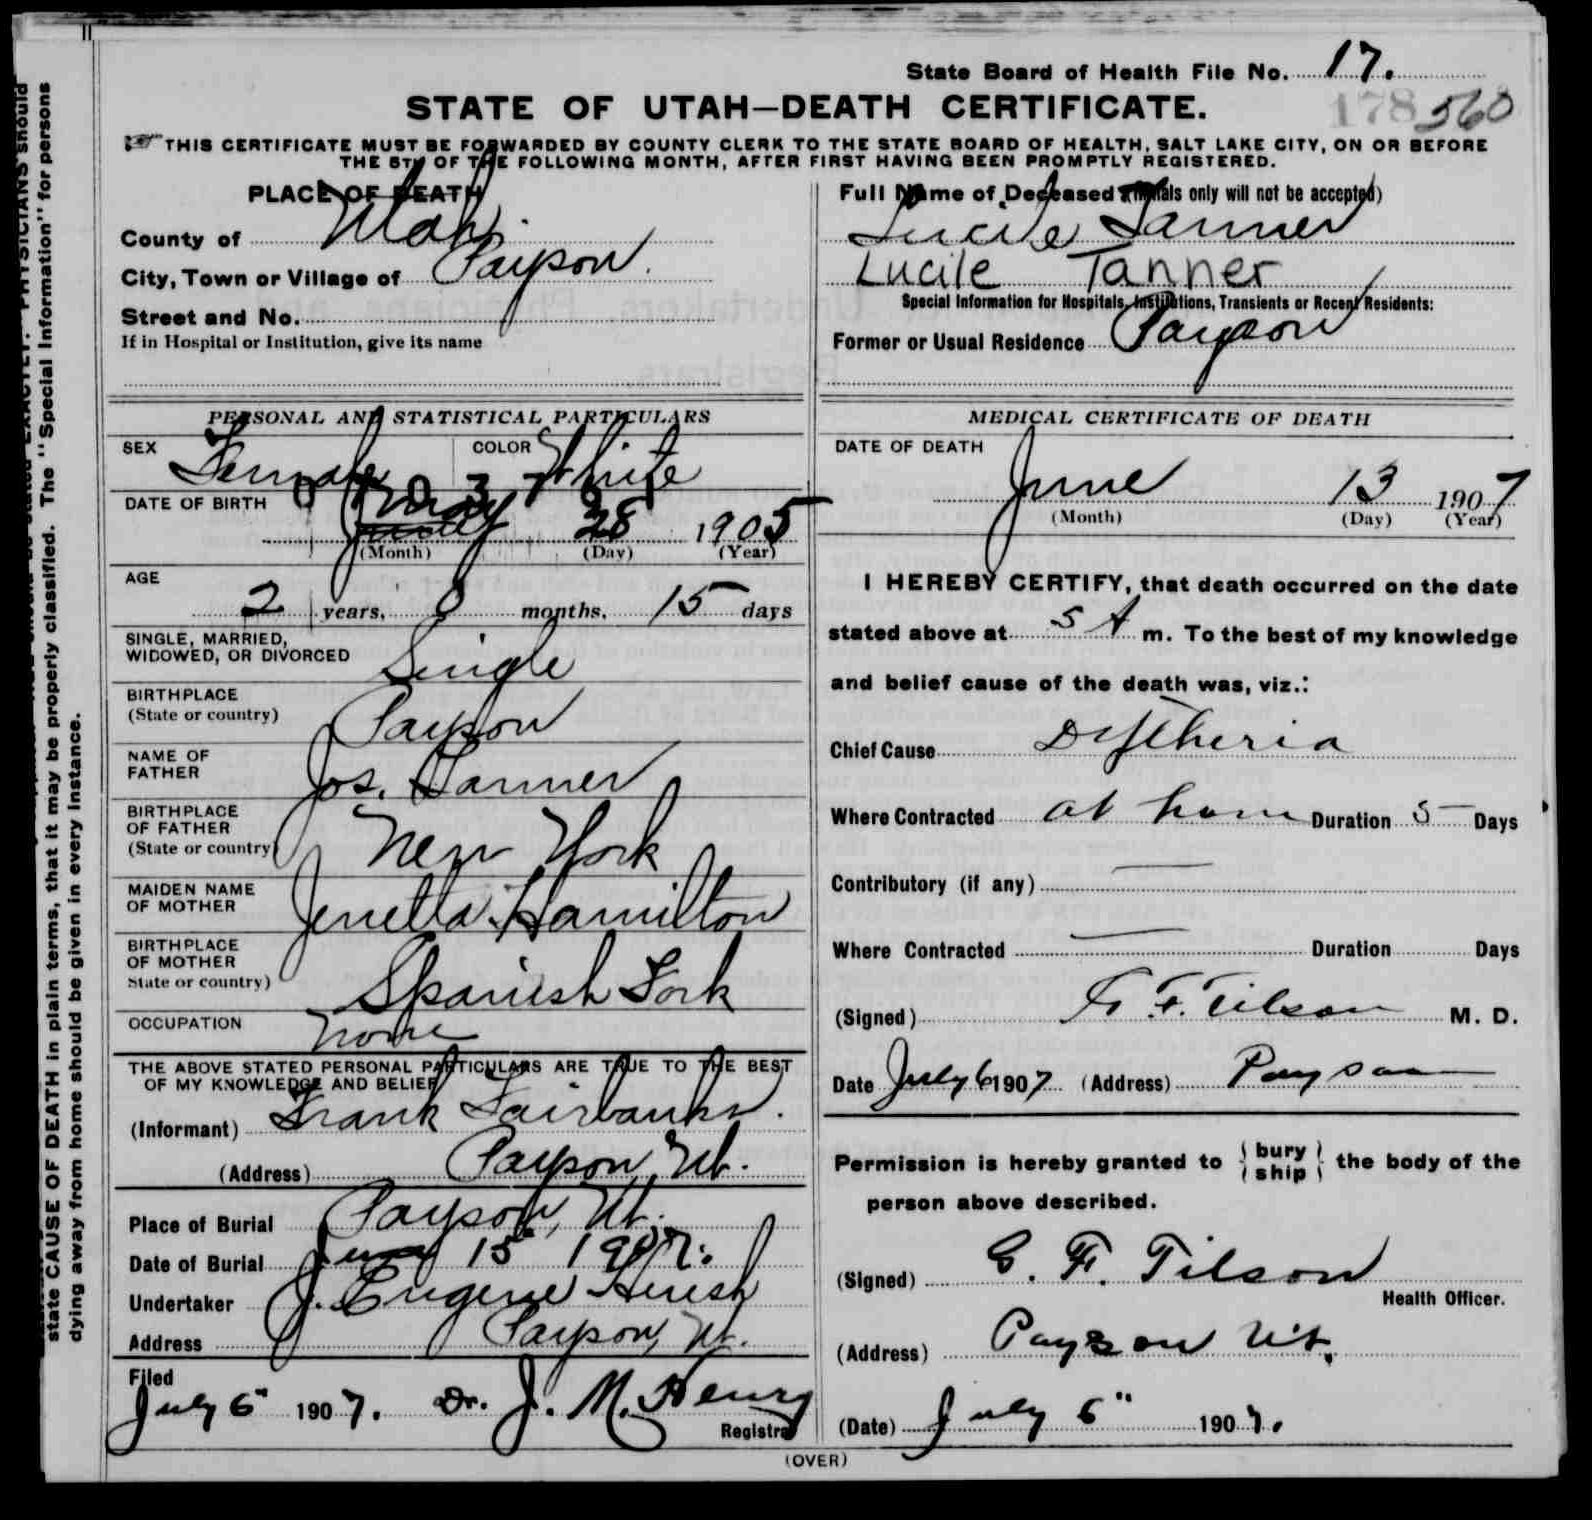 State Board of Health File No. 17.
STATE OF UTAH—DEATH CERTIFICATE.
178 560
THIS CERTIFICATE MUST BE FORWARDED BY COUNTY CLERK TO THE STATE BOARD OF HEALTH, SALT LAKE CITY, ON OR BEFORE
THE 5TH OF THE FOLLOWING MONTH, AFTER FIRST HAVING BEEN PROMPTLY REGISTERED.
PLACE OF DEATH
County of Utah.
City, Town or Village of Payson.
Street and No.
If in Hospital or Institution, give its name
Full Name of Deceased (Initials only will not be accepted)
Lucile Tanner
Lucile Tanner
Special Information for Hospitals, Institutions, Transients or Recent Residents:
Former or Usual Residence Payson
PERSONAL AND STATISTICAL PARTICULARS
SEX Female COLOR White
DATE OF BIRTH May 28 1905
(Month) (Day) (Year)
AGE
2 years, 0 months, 15 days
SINGLE, MARRIED,
WIDOWED, OR DIVORCED Single
BIRTHPLACE
(State or country) Payson
NAME OF
FATHER Jos. Tanner
BIRTHPLACE
OF FATHER
(State or country) New York
MAIDEN NAME
OF MOTHER Jenetta Hamilton
BIRTHPLACE
OF MOTHER
State or country) Spanish Fork
OCCUPATION None
THE ABOVE STATED PERSONAL PARTICULARS ARE TRUE TO THE BEST
OF MY KNOWLEDGE AND BELIEF
(Informant) Frank Fairbanks.
(Address) Payson, Ut.
Place of Burial Payson, Ut.
Date of Burial June 15 1907.
Undertaker J. Eugene
Address Payson, Ut.
Filed
July 6" 1907. Dr. J. M. Henry
Registrar
MEDICAL CERTIFICATE OF DEATH
DATE OF DEATH
June 13 1907
(Month) (Day) (Year)
I HEREBY CERTIFY, that death occurred on the date
stated above at 5 A m. To the best of my knowledge
and belief cause of the death was, viz.:
Chief Cause Diftheria
Where Contracted at home Duration 5 Days
Contributory (if any) —
Where Contracted — Duration Days
(Signed) G. F. Tilson M. D.
Date July 6 1907 (Address) Payson
Permission is hereby granted to { bury ship } the body of the
person above described.
(Signed) G. F. Tilson
Health Officer.
(Address) Payson Ut.
(Date) July 6" 1907.
(OVER)
state CAUSE OF DEATH in plain terms, that it may be properly classified. The "Special Information" for persons
dying away from home should be given in every instance.